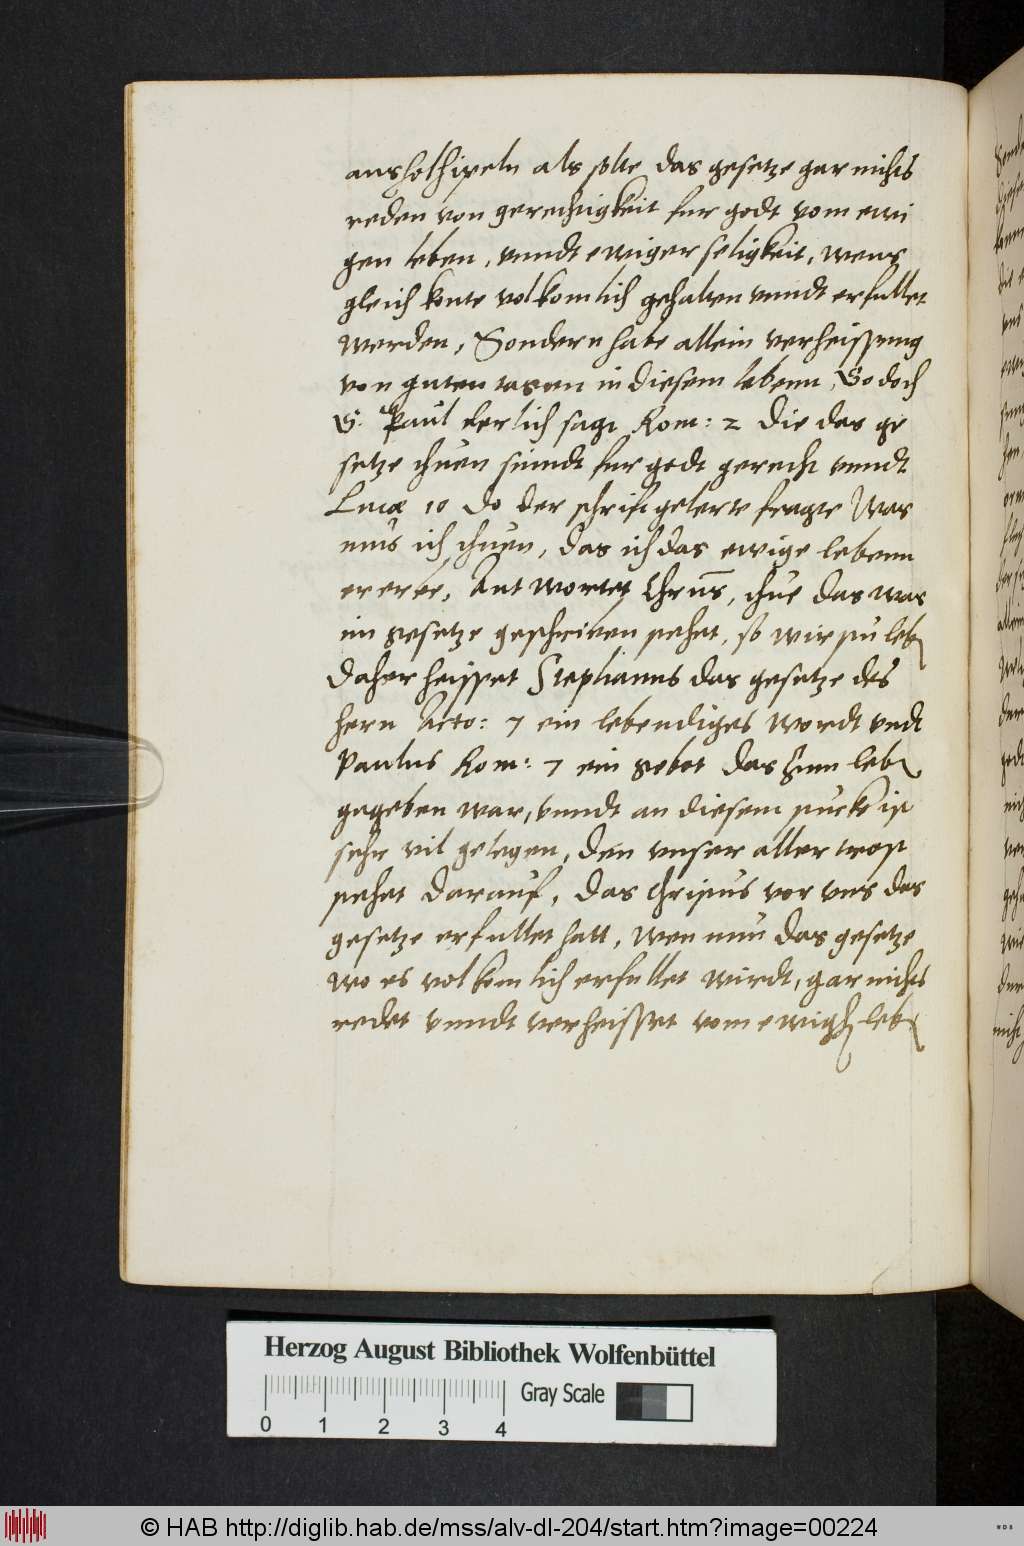 als solte das gesetze gar nichts
reden von gerechtigkeit fur godt vom ewi
gen leben, vnndt ewiger seligkeit, wens
gleich konte volkomlich gehalten vnndt erfullet
werden, Sondern habe allein verheissung
von guten tagen in diesem lebenn, So doch
S. Paul klerlich sagt Rom: 2 Die das ge
setze thuen seindt fur godt gerecht vnndt
Lucæ 10 Do der schriftgelerte fragte Was
mus ich thuen, das ich das ewige lebenn
ererbe, Antwortet Chrũs, thue das was
im gesetze geschriben stehet, so wirstu leben
Daher heisset Stephanus das gesetze des
hern Acto: 7 ein lebendiges wordt vndt
Paulus Rom: 7 ein gebot das zum leben
gegeben war, vnndt an diesem stucke ist
sehr vil gelegen, den vnser aller trost
stehet darauf, das Christus vor vns das
gesetze erfullet hatt, wen nun das gesetze
wo es volkomlich erfullet wirdt, gar nichts
redet vnndt verheisset vom ewigen leben
Herzog August Bibliothek Wolfenbüttel
Gray Scale
0 1 2 3 4
© HAB http://diglib.hab.de/mss/alv-dl-204/start.htm?image=00224